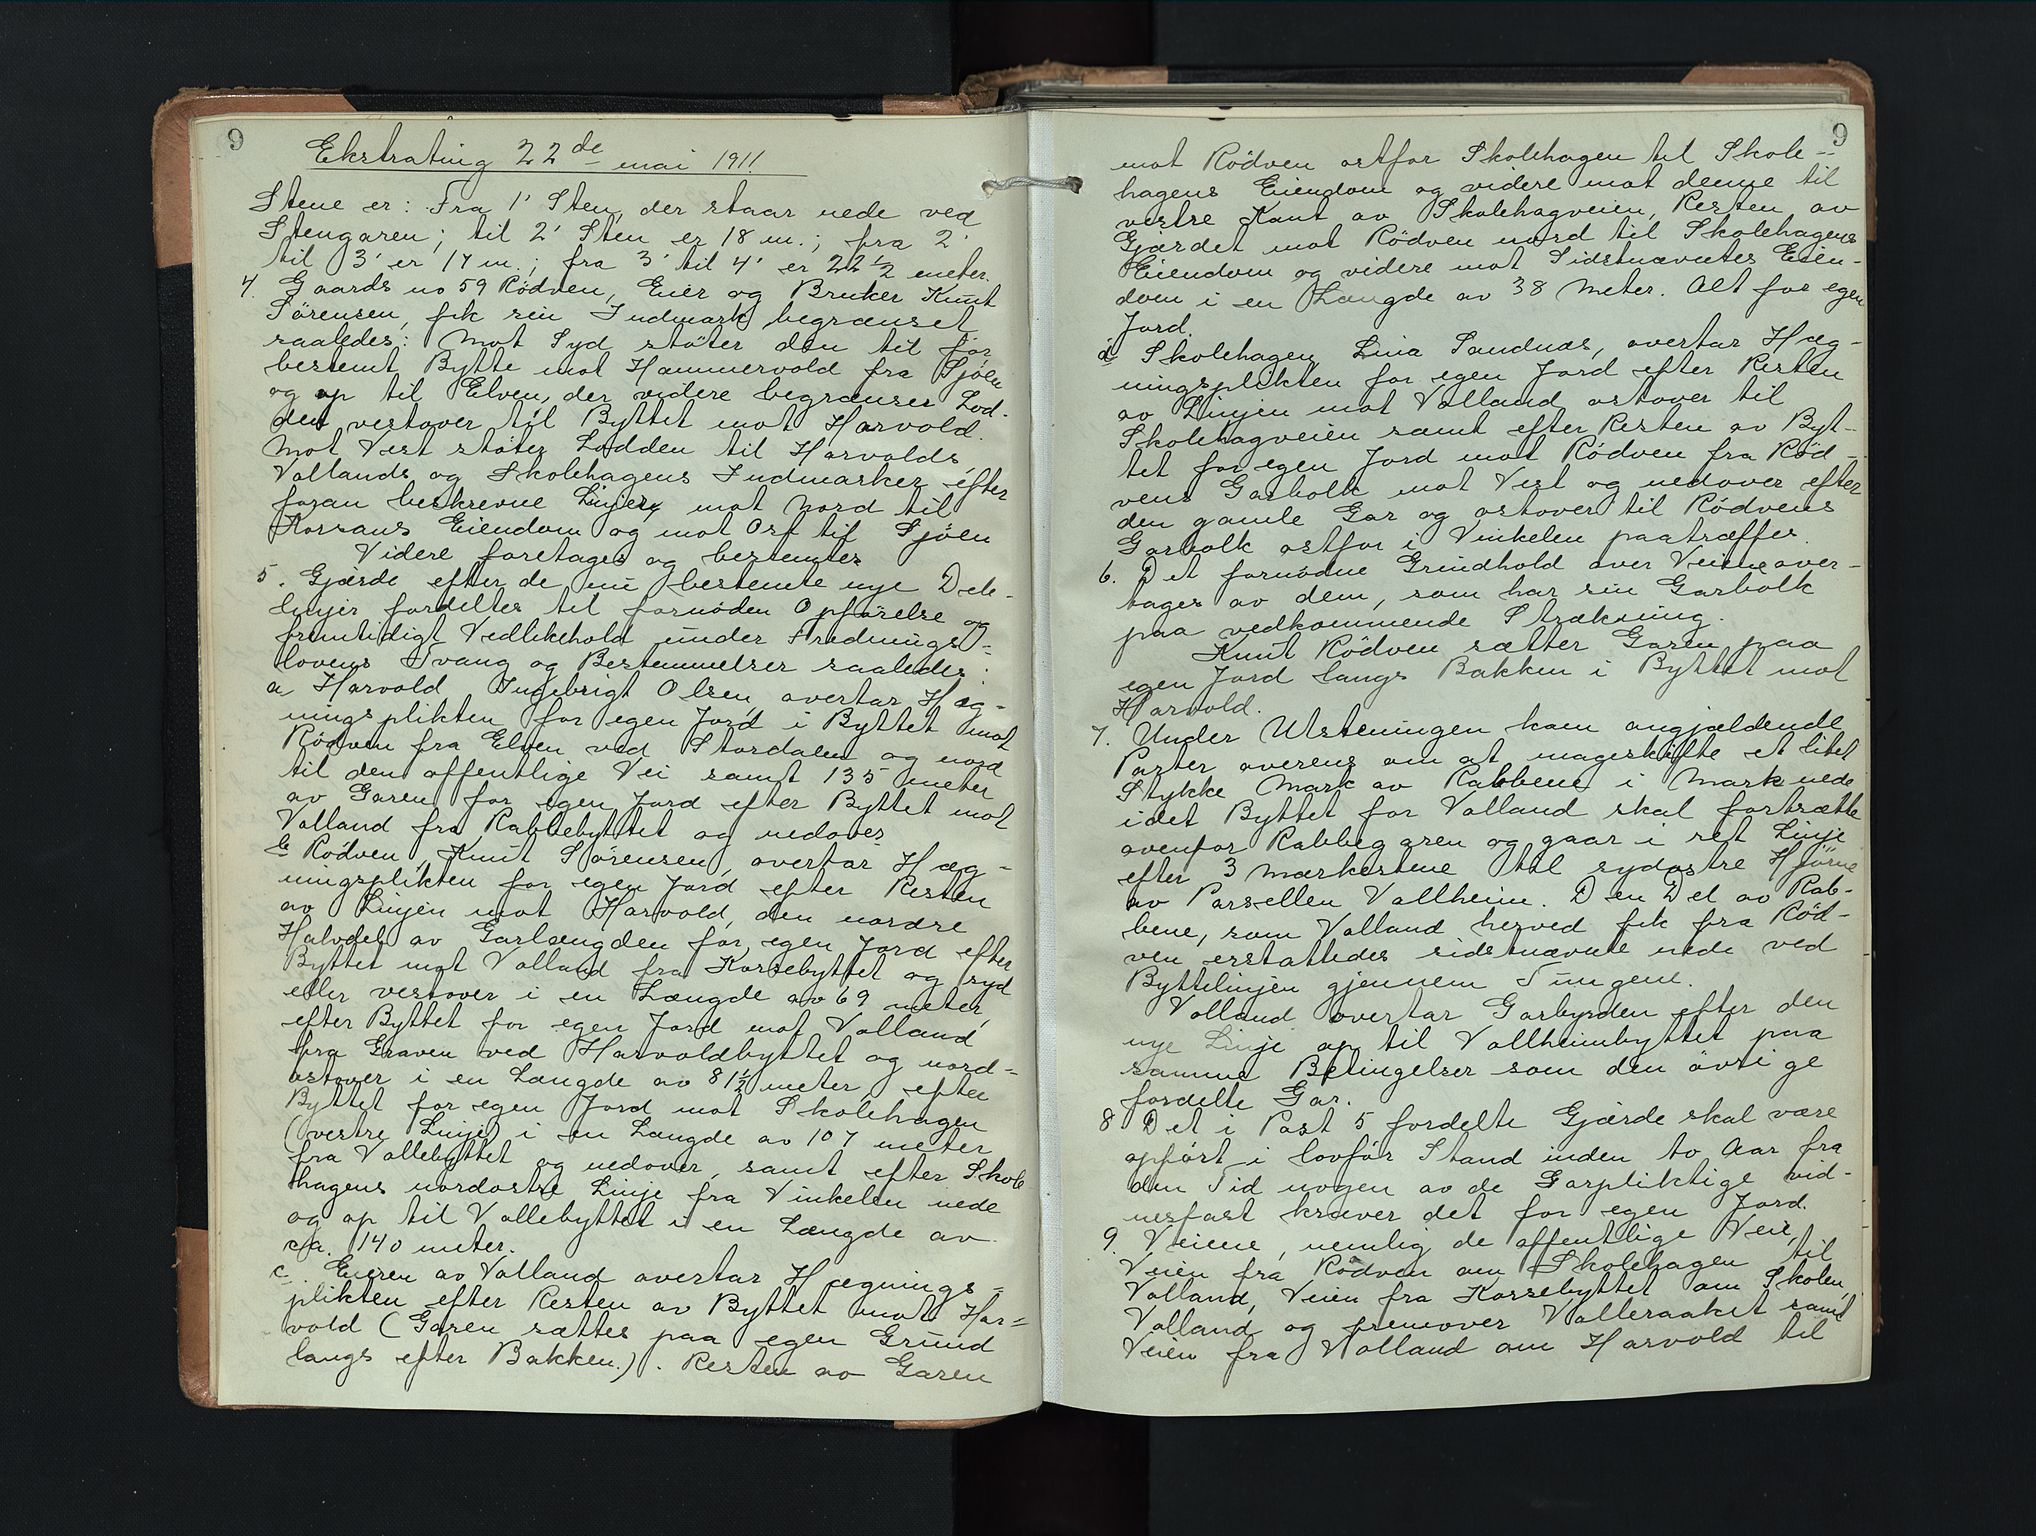 9
Ekstrating 22de mai 1911
Stene er: Fra 1' Sten, der staar nede ved
Stengaren; til 2' Sten er 18 m.; fra 2'
til 3' er 17 m.; fra 3' til 4' er 22 1/2 meter.
4. Gaards no 59 Rödven, Eier og Bruker Knut
Sörensen, fik sin Indmark begrænset
saaledes: Mot Syd stöter den til för
bestemt Bytte mot Hammervold fra Sjöen
og op til Elven, der videre begrænser Lod-
den vestover til Byttet mot Harvold.
Mot Vest stöter Lodden til Harvolds,
Vollands og Skolehagens Indmarker efter
foran beskrevne Linjer, mot Nord til
Korsans Eiendom og mot Ost til Sjöen
Videre foretages og bestemtes
5. Gjærde efter de nu bestemte nye Dele-
linjer fordeltes til fornöden Opförelse og
fremtidigt Vedlikehold under Frednings-
lovens Tvang og Bestemmelser saaledes:
a, Harvold, Ingebrigt Olsen, overtar Hæg-
ningsplikten for egen Jord i Byttet mot
Rödven fra Elven ved Stordalen og nord
til den offentlige Vei samt 135 meter
av Garen for egen Jord efter Byttet mot
Volland fra Rabbebyttet og nedover
b Rödven, Knut Sörensen, overtar Hæg-
ningsplikten for egen Jord efter Resten
av Linjen mot Harvold, den nordre
Halvdel av Garlængden for egen Jord efter
Byttet mot Volland fra Korsebyttet og syd
eller vestover i en Længde av 69 meter,
efter Byttet for egen Jord mot Volland
fra Graven ved Harvoldbyttet og nord-
ostover i en Længde av 81 1/2 meter, efter
Byttet for egen Jord mot Skolehagen
(vestre Linje) i en Længde av 107 meter
fra Vollebyttet og nedover, samt efter Skole
hagens nordostre Linje fra Vinkelen nede
og op til Vollebyttet i en Længde av
c/a. 140 meter.
c. Eieren av Volland overtar Hægnings-
plikten efter Resten av Byttet mot Har-
vold (Garen sættes paa egen Grund
langs efter Bakken.). Resten av Garen
9
mot Rödven ostfor Skolehagen til Skole-
hagens Eiendom og videre mot denne til
vestre Kant av Skolehagveien, Resten av
Gjærdet mot Rödven nord til Skolehagens
Eiendom og videre mot Sidstnævntes Eien-
dom i en Længde av 38 Meter. Alt for egen
Jord.
d Skolehagen, Lina Sandnæs, overtar Hæg-
ningsplikten for egen Jord efter Resten
av Linjen mot Volland ostover til
Skolehagveien samt efter Resten av Byt-
tet for egen Jord mot Rödven fra Röd-
vens Garbolk mot Vest og nedover efter
den gamle Gar og ostover til Rödvens
Garbolk ostfor i Vinkelen paatræffes.
6. Det fornödne Grindhold over Veiene over-
tages av dem, som har sin Garbolk
paa vedkommende Strækning.
Knut Rödven sætter Garen paa
egen Jord langs Bakken i Byttet mot
Harvold.
7. Under Utsteningen kom angjældende
Parter overens om at mageskifte et litet
Stykke Mark av Rabbene i Mark nede
idet Byttet for Volland skal fortsætte
ovenfor Rabbegaren og gaar i ret Linje
efter 3 Mærkestene til sydostre Hjörne
av Parsellen Vollheim. Den Del av Rab-
bene, som Volland herved fik fra Röd-
ven erstattedes sidstnævnte nede ved
Byttelinjen gjennem Tungene.
Volland overtar Garbyrden efter den
nye Linje op til Vollheimbyttet paa
samme Betingelser som den övrige
fordelte Gar.
8 Det i Post 5 fordelte Gjærde skal være
opfört i lovför Stand inden to Aar fra
den Tid nogen av de Garpliktige vid-
nesfast kræver det for egen Jord.
9. Veiene, nemlig de offentlige Veie,
Veien fra Rödven om Skolehagen til
Volland, Veien fra Korsebyttet om Skolen,
Volland og fremover Volleraaket samt
Veien fra Volland om Harvold til